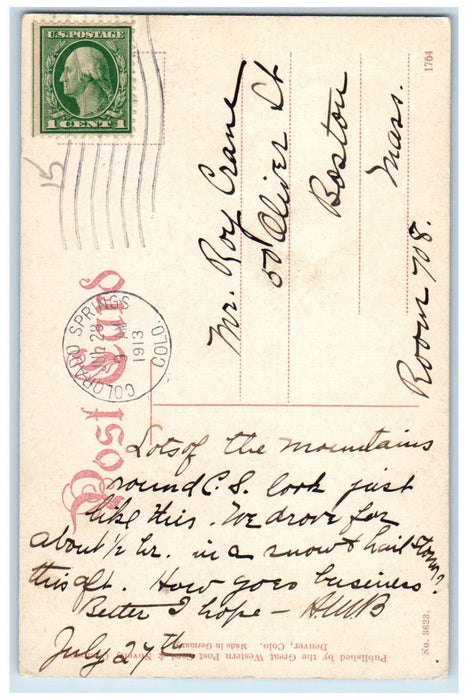 U.S. POSTAGE
1 CENT 1
COLORADO SPRINGS
COLO.
28
1913
Post Card
1764
Mr. Roy Crane
50 Oliver St
Boston
Mass.
Room 708.
Lots of the mountains
round C. S. look just
like this. We drove for
about ½ hr. in a snow & hail storm
this aft. How goes business?
Better I hope – H.W.B
July 27th
Published by the Great Western Post Card & Novelty
Denver, Colo. Made in Germany
No. 3623.
15